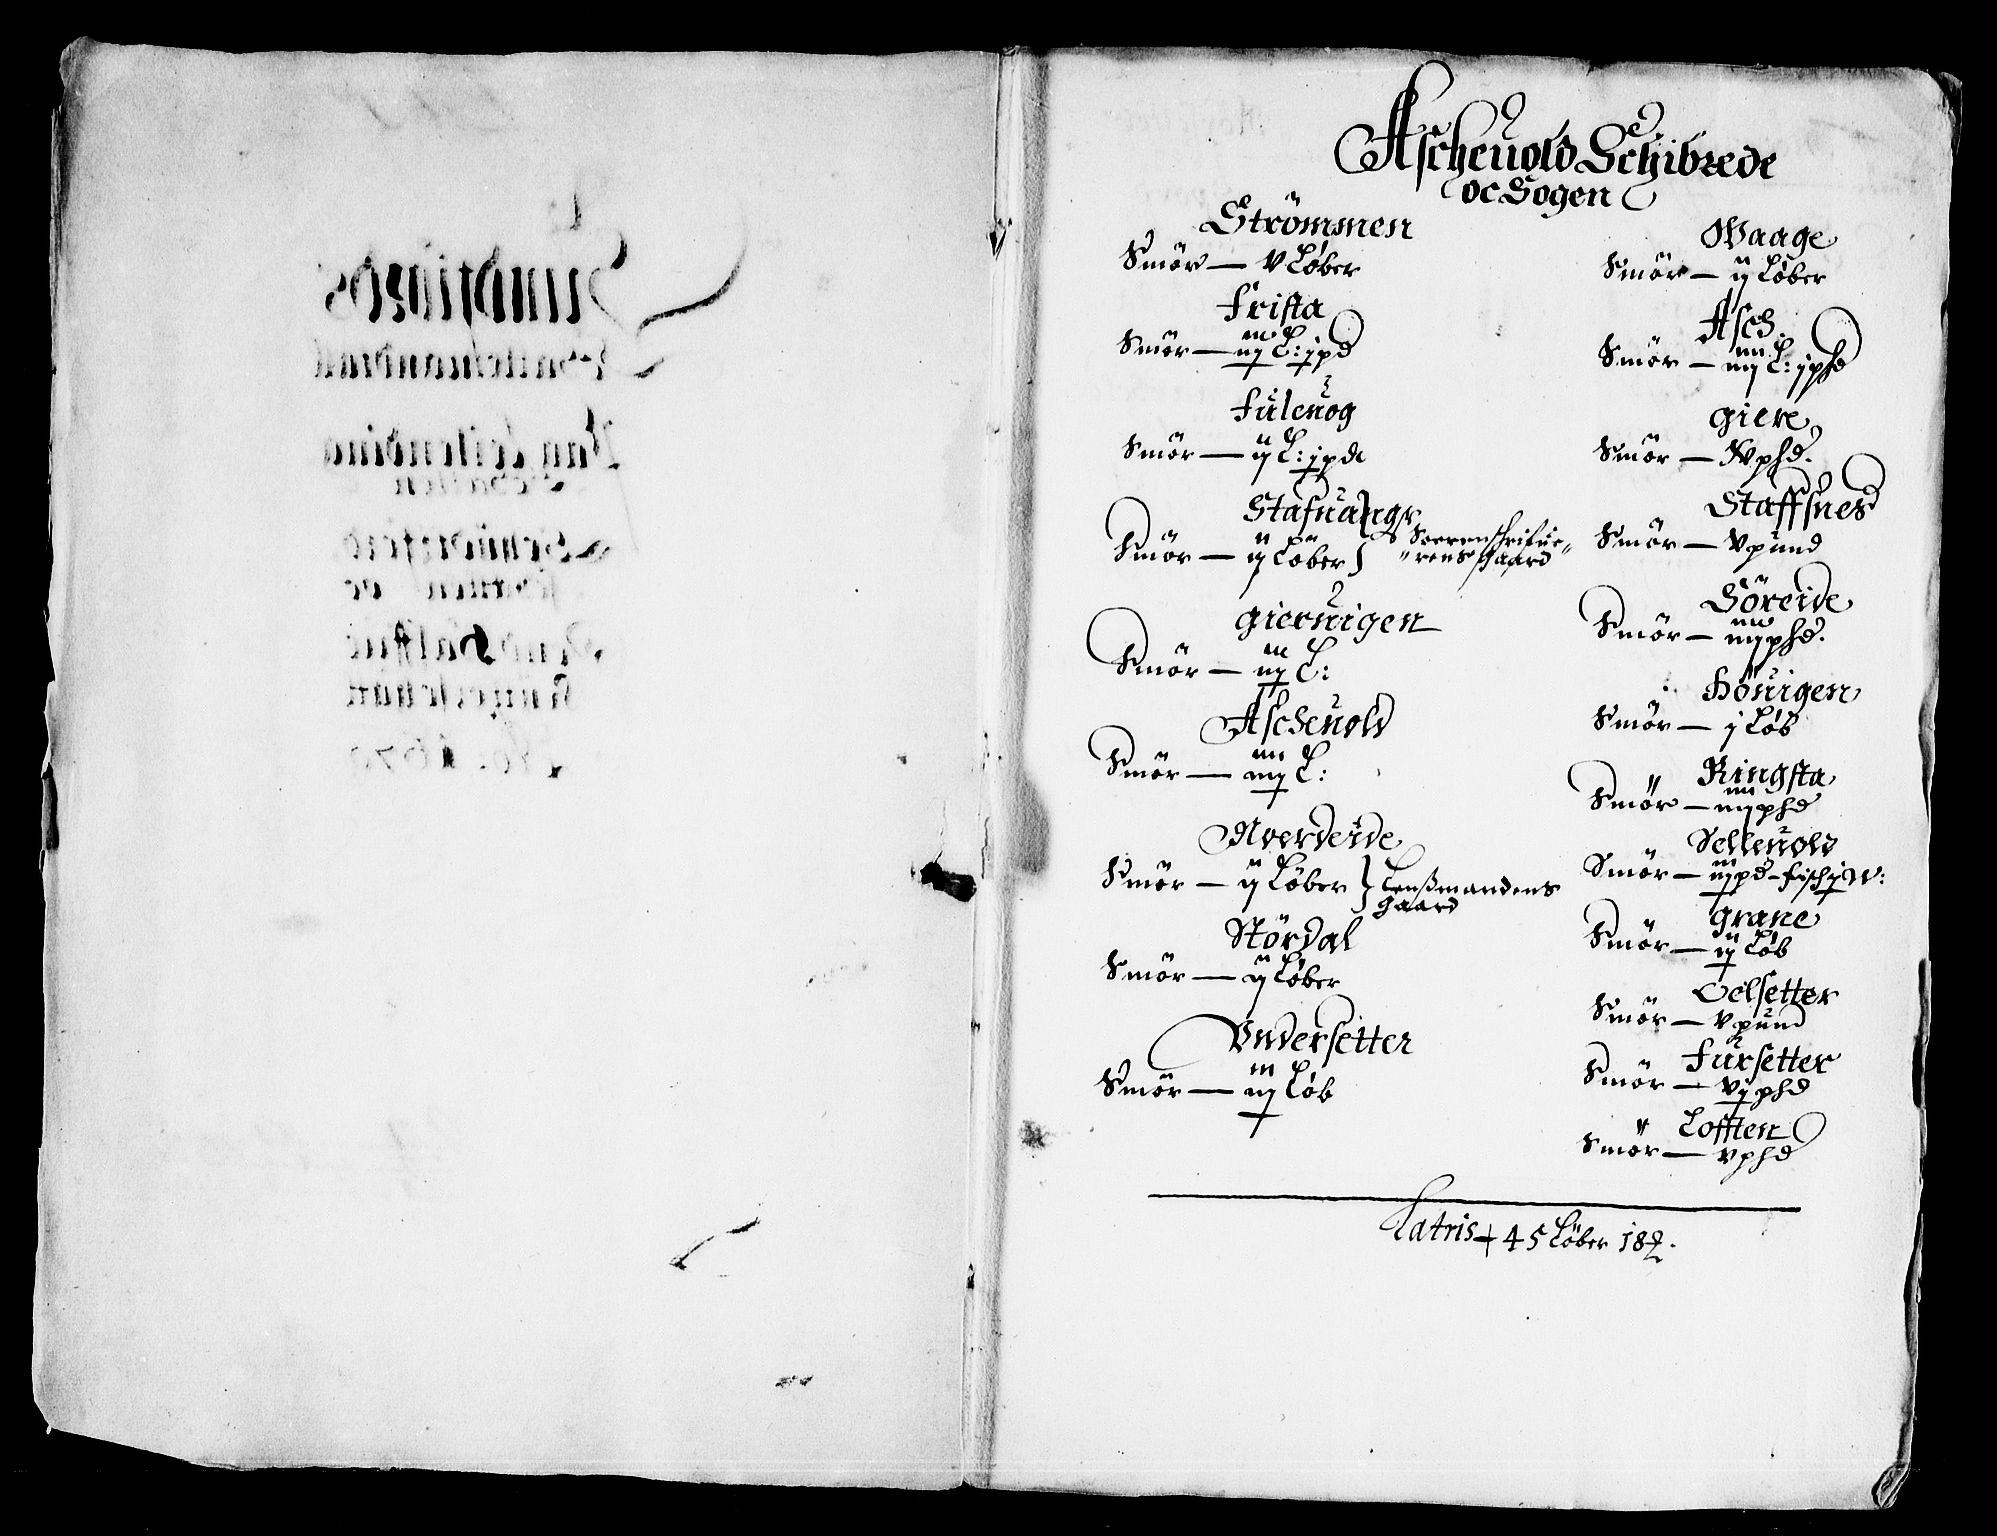 Ascheuold Schibrede
oc Sogen
Strömmen
Smör — v Löber
Frista
Smör — iij L: j pd
Füleuog
Smör — ij L: j pd
Stafuangr
Smör — ij Löber } Sorrenschrifue-
"rens gaard
Gieruigen
Smör — iij L:
Ascheuold
Smör — iiij L:
Nverdeide
Smör — ij Löber } Lenßmandens
gaard
Stördal
Smör — ij Löber
Vndersetter
Smör — iij Löb
Waage
Smör — ij Löber
Asch
Smör — iiij L: j phd
Giere
Smör — phd.
Staffsnes
Smör — v pund
Söreide
Smör — iiij phd.
Höuigen
Smör — j Löb
Ringsta
Smör — iiij phd
Selleuold
Smör — iij pd - fisch j W:
Grane
Smör — ij Löb
Oelsetter
Smör — v pund
Fürsetter
Smör — vj phd
Lofften
Smör — v phd
Latris 45 Löber 18